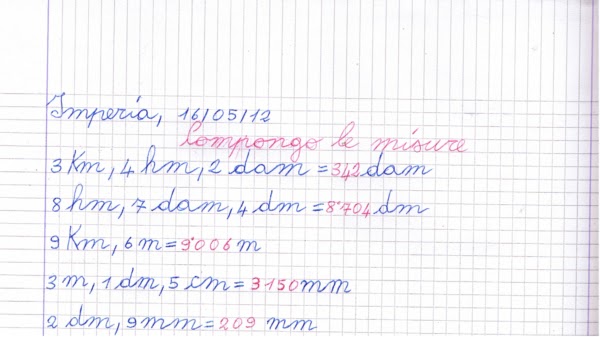 Imperia, 16/05/12
Compongo le misure
3 Km, 4 hm, 2 dam = 342 dam
8 hm, 7 dam, 4 dm = 8˙704 dm
9 Km, 6 m = 9˙006 m
3 m, 1 dm, 5 cm = 3150 mm
2 dm, 9 mm = 209 mm